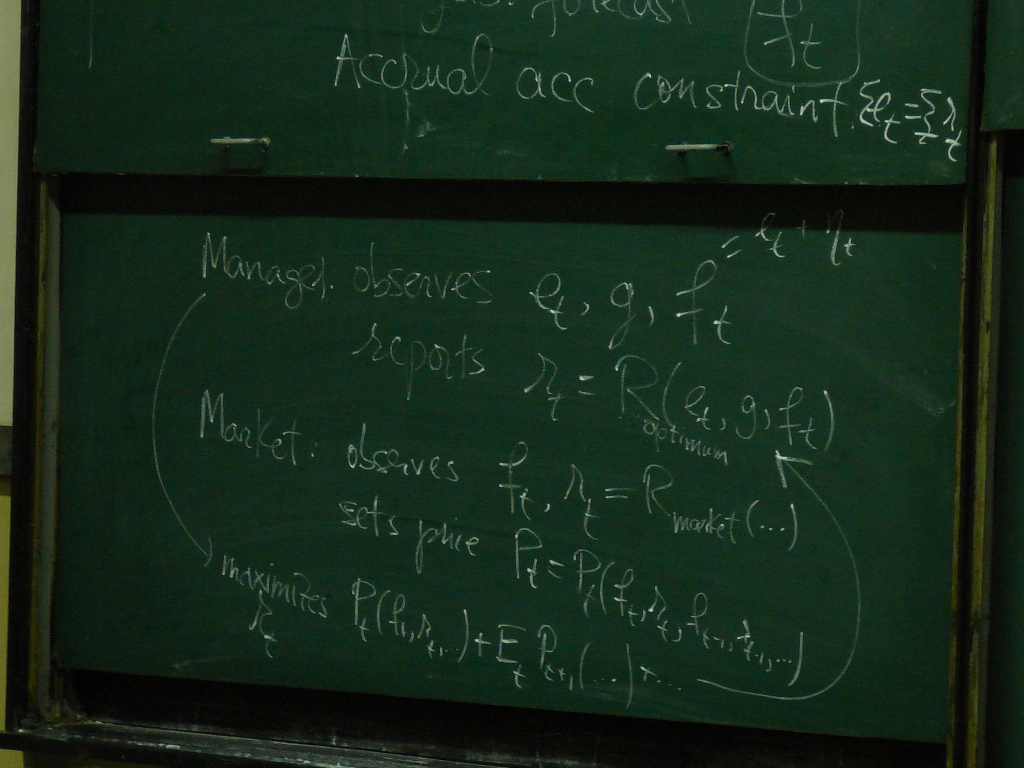 forecast f_t
Accrual acc constraint. Σe_t = Σr_t
Manager. observes e_t, g, f_t = e_t + η_t
reports r_t = R_optimum(e_t, g, f_t)
Market: observes f_t, r_t = R_market(...)
sets price P_t = P_t(f_t, r_t, f_{t-1}, r_{t-1}, ...)
maximizes r_t P_t(f_t, r_t, ...) + E_t P_{t+1}(...) + ...